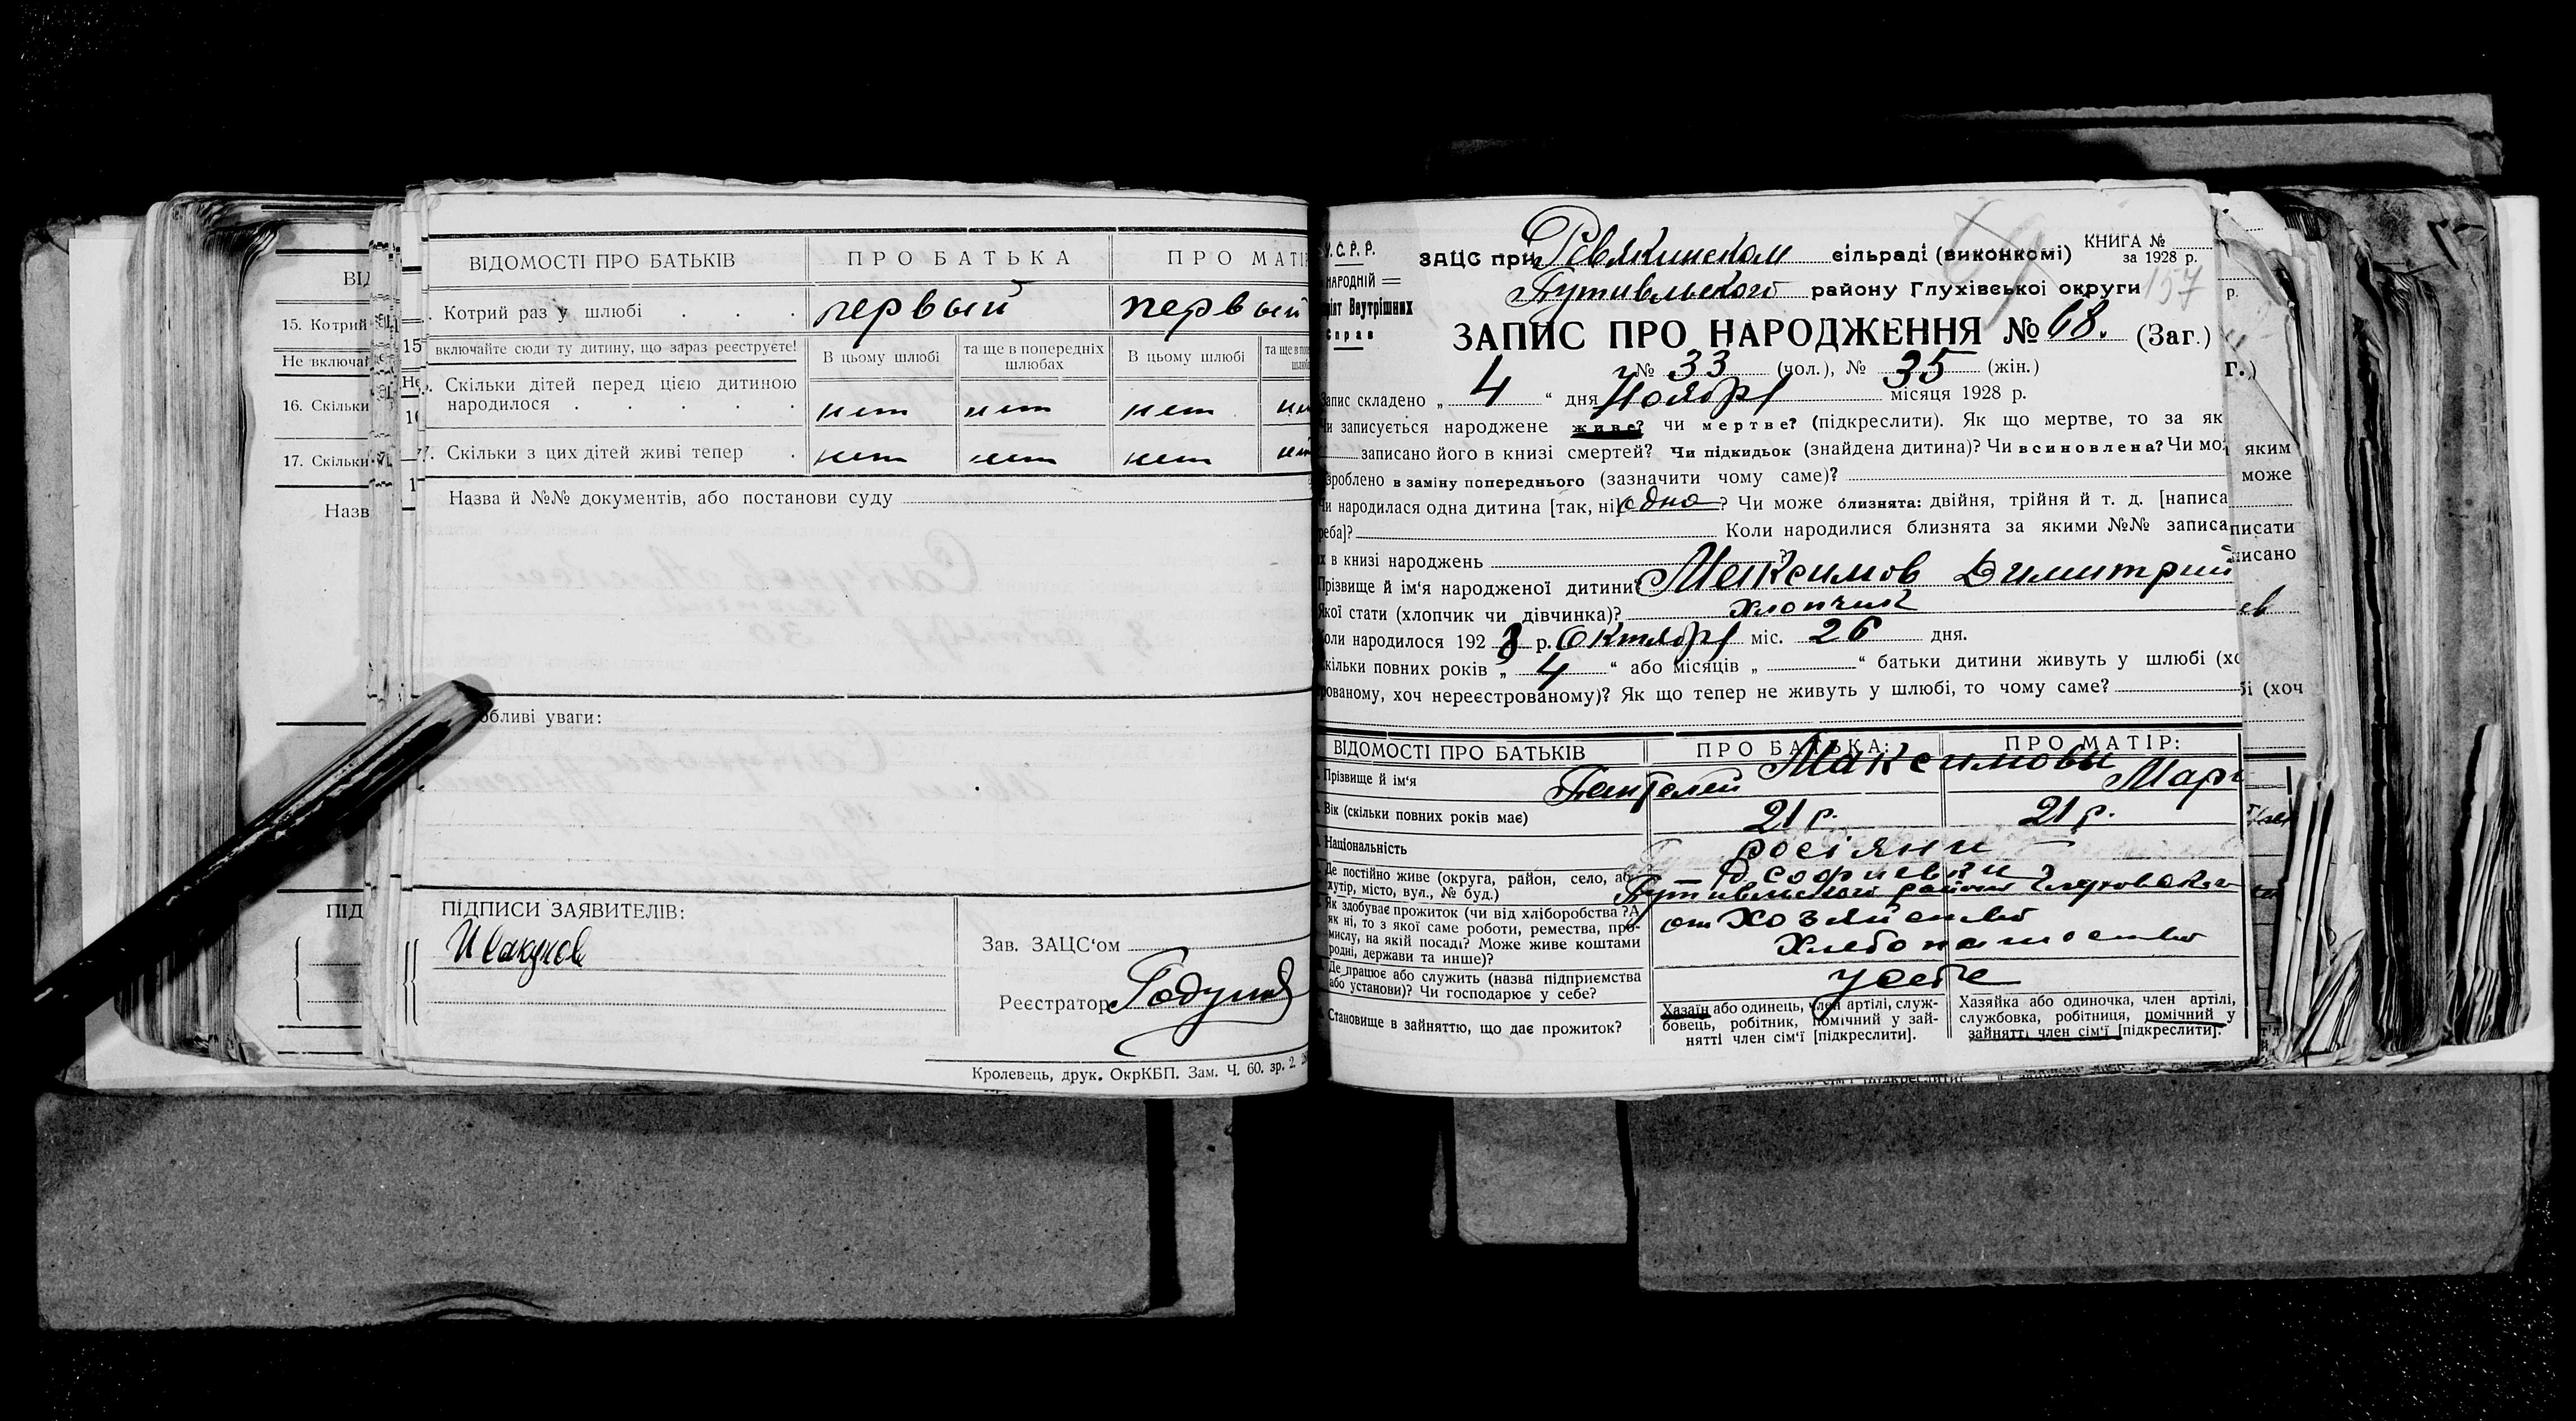 ВІДОМОСТІ ПРО БАТЬКІВ ПРО БАТЬКА ПРО МАТІ
Котрий раз у шлюбі первый первый
включайте сюди ту дитину, що зараз реєструєте! В цьому шлюбі та ще в попередніх шлюбах В цьому шлюбі
Скільки дітей перед цією дитиною
народилося нет нет нет
Скільки з цих дітей живі тепер нет нет нет
Назва й №№ документів, або постанови суду
бливі уваги:
ПІДПИСИ ЗАЯВИТЕЛІВ:
Зав. ЗАЦС'ом
Реєстратор
Кролевець, друк. ОкрКБП. Зам. Ч. 60. зр. 2.
15. Котрий
Не включа
16. Скільки
17. Скільки
Назв
ПІД
У.С.Р.Р.
НАРОДНІЙ
Внутрішних
Справ
ЗАЦС при Ревякинском сільраді (виконкомі) КНИГА №
за 1928 р.
Путивльского району Глухівської округи 157
ЗАПИС ПРО НАРОДЖЕННЯ № 68. (Заг.)
№ 33 (чол.), № 35 (жін.)
Запис складено „ 4 “ дня Ноября місяця 1928 р.
Чи записується народжене живе? чи мертве? (підкреслити). Як що мертве, то за як
записано його в книзі смертей? Чи підкидьок (знайдена дитина)? Чи всиновлена? Чи мо
зроблено в заміну попереднього (зазначити чому саме)?
Чи народилася одна дитина [так, ні] одна ? Чи може близнята: двійня, трійня й т. д. [написа
треба]? Коли народилися близнята за якими №№ записа
їх в книзі народжень
Прізвище й ім'я народженої дитини? Максимов Димитрий
Якої стати (хлопчик чи дівчинка)? хлопчик
Коли народилося 1928 р. Октября міс. 26 дня.
Скільки повних років „ 4 “ або місяців „ “ батьки дитини живуть у шлюбі (хо
рованому, хоч нереєстрованому)? Як що тепер не живуть у шлюбі, то чому саме?
ВІДОМОСТІ ПРО БАТЬКІВ ПРО БАТЬКА: ПРО МАТІР:
Прізвище й ім'я Максимовы Пантелей Мари
Вік (скільки повних років має) 21 р. 21 р.
Національність росіяни
Де постійно живе (округа, район, село, або
хутір, місто, вул., № буд.) Д. Софиевки Путивльского района Глуховского
Як здобуває прожиток (чи від хліборобства? А
як ні, то з якої саме роботи, ремества, про-
мислу, на якій посаді? Може живе коштами
родні, держави та инше)? от Хозяйства Хлебопашества
Де працює або служить (назва підприємства
або установи)? Чи господарює у себе? у себе
Становище в зайняттю, що дає прожиток?
Хазаїн або одинець, член артілі, служ-
бовець, робітник, помічний у зай-
нятті член сім'ї [підкреслити].
Хазяйка або одиночка, член артілі,
службовка, робітниця, помічний у
зайнятті член сім'ї [підкреслити].
яким
може
писати
писано
бі (хоч